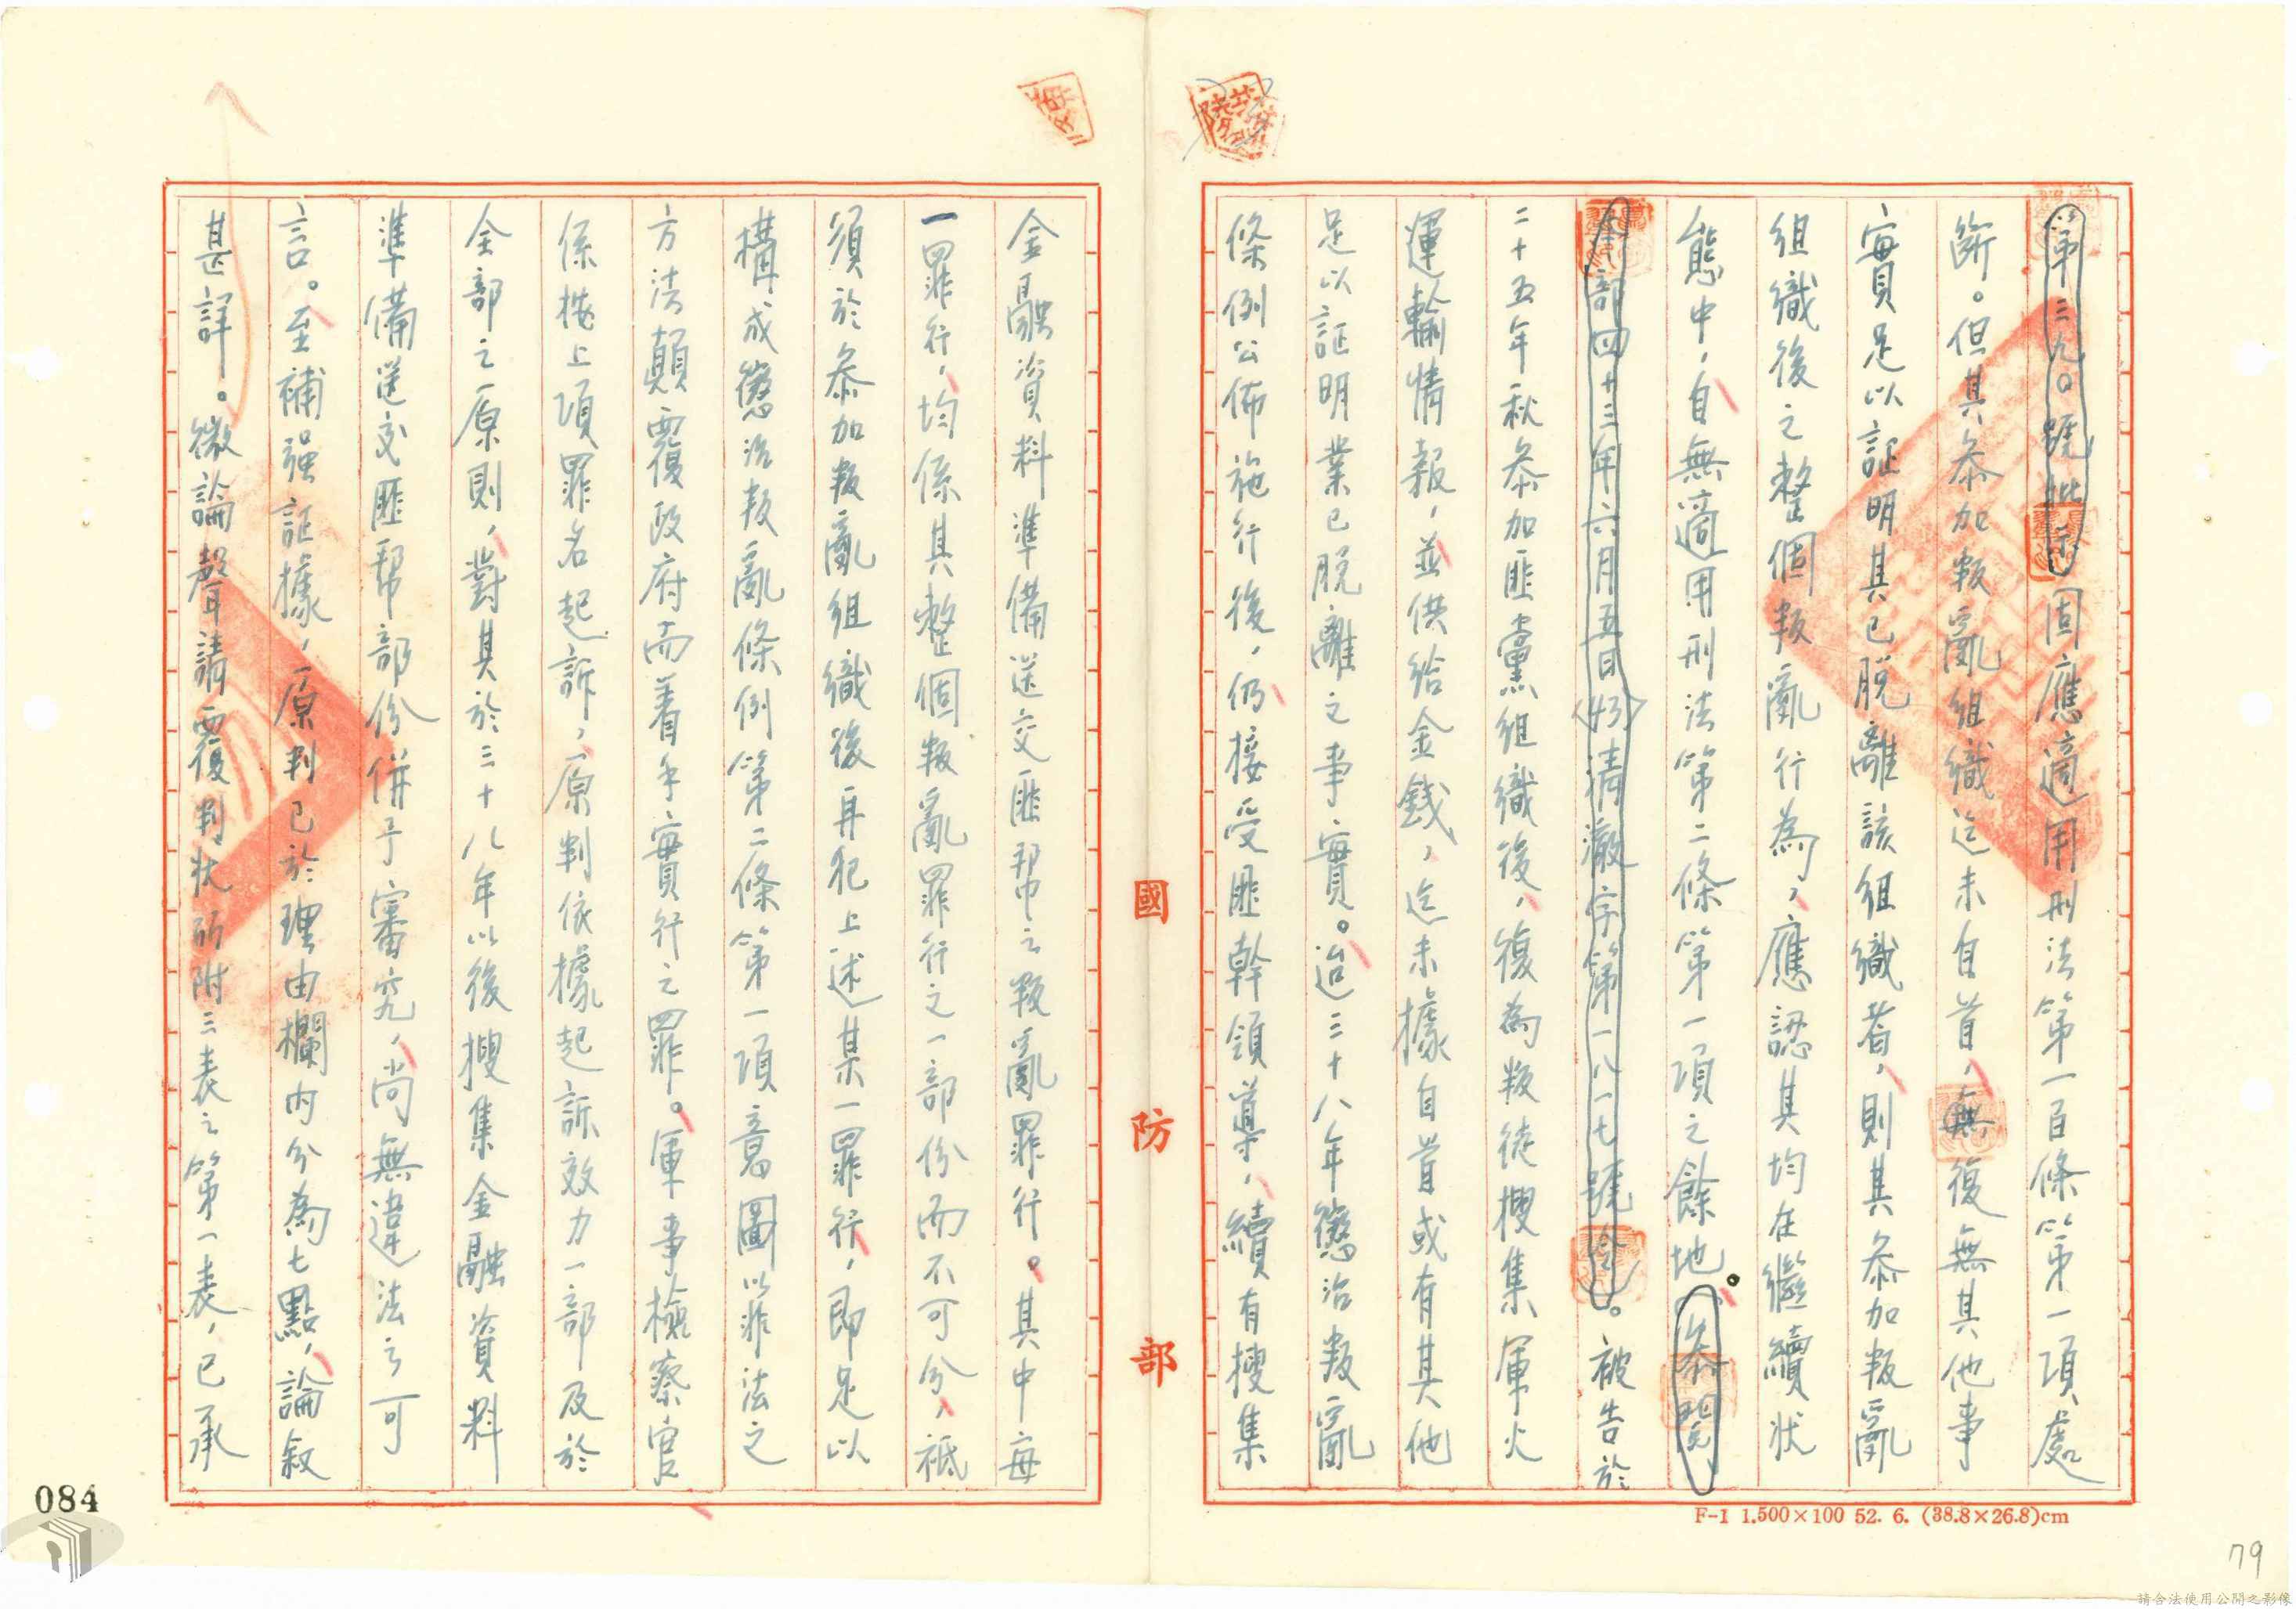 第三九〇號批示固應適用刑法第一百條第一項處
斷。但其叅加叛亂組織迄未自首，無復無其他事
實足以証明其已脫離該組織者，則其叅加叛亂
組織後之整個叛亂行為，應認其均在繼續狀
態中，自無適用刑法第二條第一項之餘地。叅閱
本部四十三年六月五日(43)清澈字第一八一七號令。被告於
二十五年秋叅加匪黨組織後，復為叛徒搜集軍火
運輸情報，並供給金錢，迄未據自首或有其他
足以証明業已脫離之事實。迨三十八年懲治叛亂
條例公佈施行後，仍接受匪幹領導，續有搜集
國防部
金融資料準備送交匪帮之叛亂罪行。其中每
一罪行，均係其整個叛亂罪行之一部份而不可分，祗
須於叅加叛亂組織後再犯上述某一罪行，即足以
構成懲治叛亂條例第二條第一項意圖以非法之
方法顛覆政府而着手實行之罪。軍事檢察官
係按上項罪名起訴，原判依據起訴效力一部及於
全部之原則，對其於三十八年以後搜集金融資料
準備送交匪帮部份併予審究，尚無違法之可
言。至補强証據，原判已於理由欄內分為七點，論叙
甚詳。徵論聲請覆判狀所附三表之第一表，已承
F-1 1.500×100 52. 6. (38.8×26.8)cm
084
79
請合法使用公開之影像